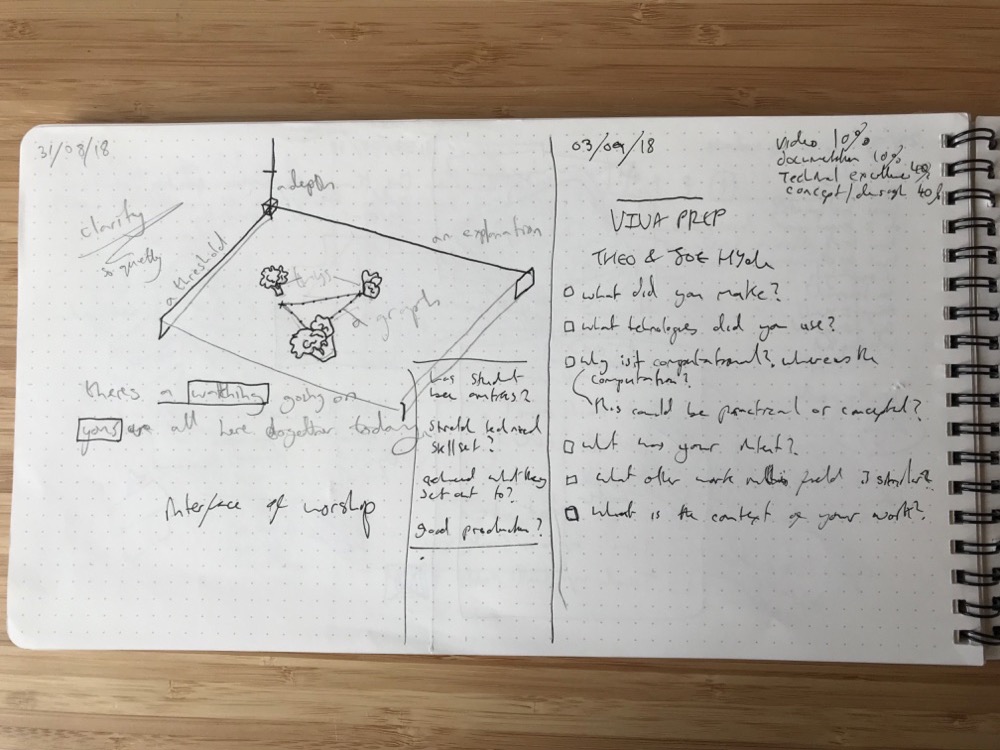 31/08/18
a depth
clarity
so quietly
a threshold
an explanation
a graph
there's a watching going on
yous are all here together today
Interface of worship
has student
been ambitious?
stretched technical
skillset?
achieved what they
set out to?
good production?
03/09/18
video 10%
documentation 10%
Technical excellence 40%
concept/through 40%
VIVA PREP
THEO & JOE
what did you make?
what technologies did you use?
Why is it computational?, whereas the
computation?
this could be practical or conceptual?
what was your intent?
what other work in this field is similar?
What is the context of your work?